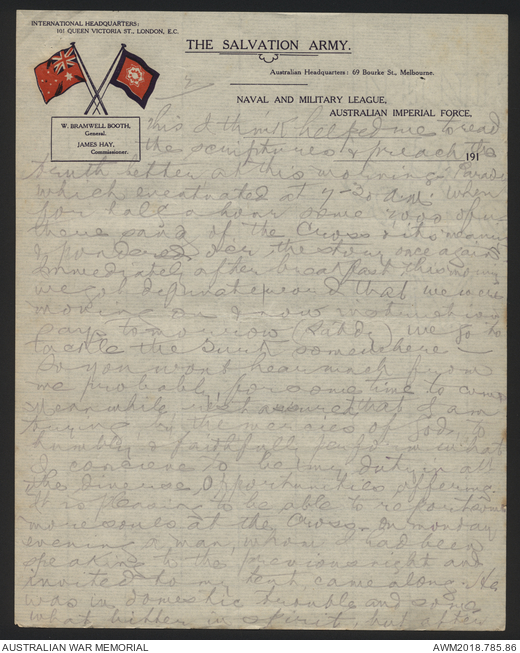 INTERNATIONAL HEADQUARTERS:
101 QUEEN VICTORIA ST., LONDON, E.C.
THE SALVATION ARMY.
Australian Headquarters: 69 Bourke St., Melbourne.
NAVAL AND MILITARY LEAGUE,
AUSTRALIAN IMPERIAL FORCE,
W. BRAMWELL BOOTH,
General.
JAMES HAY,
Commissioner.
191
this I think helped me to read
the scriptures & preach the
truth better at this mornings Parade
which eventuated at 9-30 a.m. When
for half a hour some of us
there sang of the Cross & its
I pondered oer the story once again
Immediately after breakfast this morning
we got that we were
moving on & now
camp tomorrow we go to
tackle the somewhere
So you wont hear much from
me probably for some time to come
meanwhile rest assured that I am
trying by the mercies of God to
humbly & faithfully perform what
I conceive to be my duty in all
the diverse opportunities offering.
It is pleasing to be able to report some
more souls at the Cross. On monday
evening a man, whom I had been
speaking to the previous night and
invited to my tent came along. He
was in domestic trouble and some
what bitter in spirit, but after
AUSTRALIAN WAR MEMORIAL
AWM2018.785.86